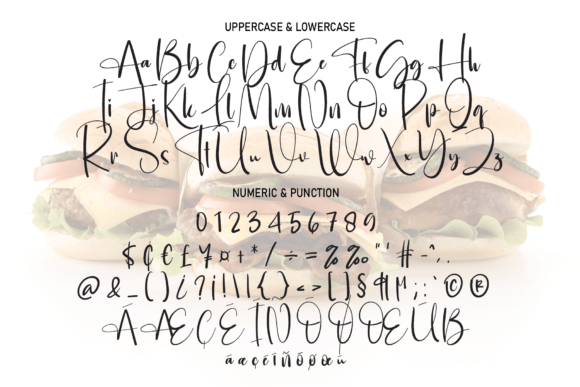 UPPERCASE & LOWERCASE
Aa Bb Cc Dd Ee Ff Gg Hh
Ii Jj Kk Ll Mm Nn Oo Pp Qq
Rr Ss Tt Uu Vv Ww Xx Yy Zz
NUMERIC & PUNCTION
0 1 2 3 4 5 6 7 8 9
$ ¢ € £ ¥ ¤ + * / ÷ = % ‰ " ' # - ^ , .
@ & _ ( ) ¿ ? ¡ ! | \ { } < > [ ] § ¶ µ ; : ` © ®
Á Æ Ç É Í Ñ Ó Ø Œ Ú ß
á æ ç é í ñ ó ø œ ú